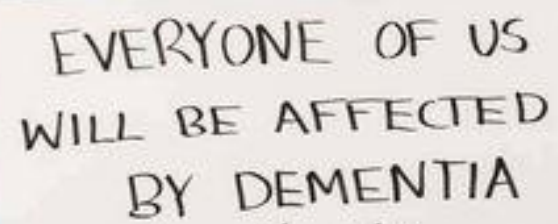 EVERYONE OF US
WILL BE AFFECTED
BY DEMENTIA